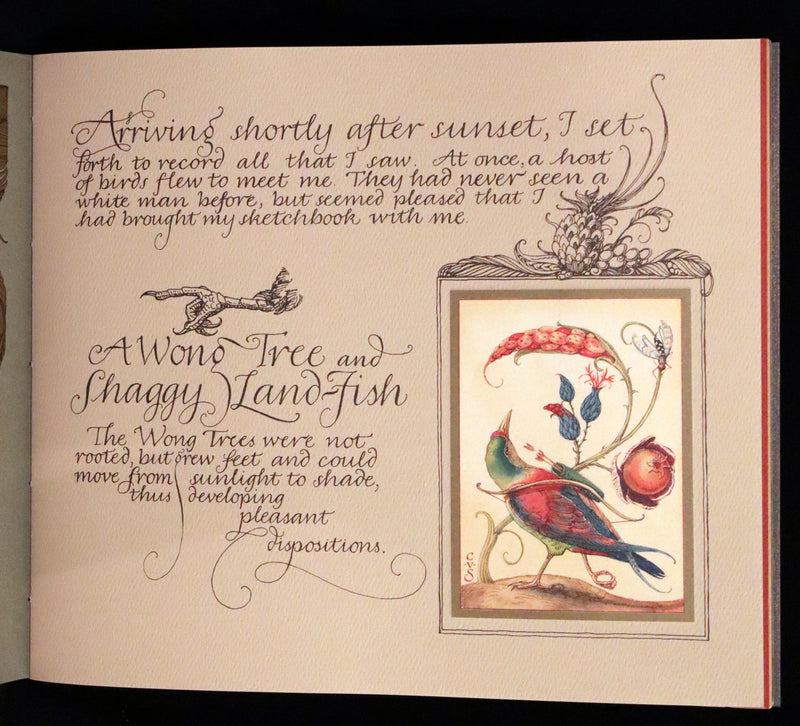 Arriving shortly after sunset, I set
forth to record all that I saw. At once, a host
of birds flew to meet me. They had never seen a
white man before, but seemed pleased that I
had brought my sketchbook with me.
A Wong Tree and
Shaggy Land-Fish
The Wong Trees were not
rooted, but grew feet and could
move from sunlight to shade,
thus developing
pleasant
dispositions.
C
V
S